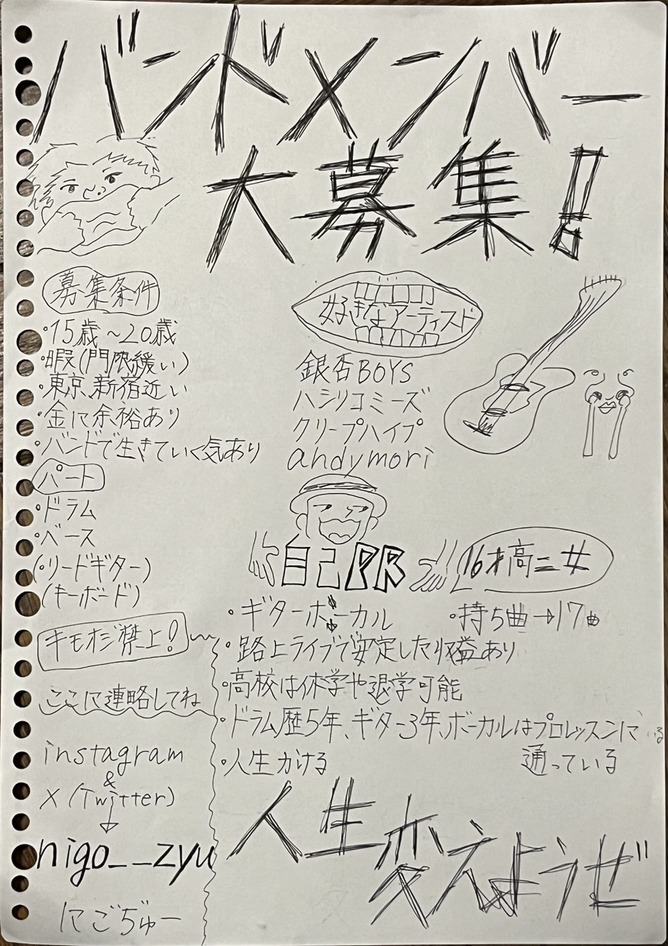 バンドメンバー
大募集!!
募集条件
・15歳～20歳
・暇(門限緩い)
・東京、新宿近い
・金に余裕あり
・バンドで生きていく気あり
パート
・ドラム
・ベース
(リードギター)
(キーボード)
キモおじ禁止!
ここに連絡してね
instagram
&
X(Twitter)
↓
nigo__zyu
にごぢゅー
好きなアーティスト
銀杏BOYS
ハシリコミーズ
クリープハイプ
andymori
自己PR
16才高二女
・ギターボーカル ・持ち曲→17曲
・路上ライブで安定した収益あり
・高校は休学や退学可能
・ドラム歴5年、ギター3年、ボーカルはプロレッスンに
通っている
・人生かける
人生変えようぜ